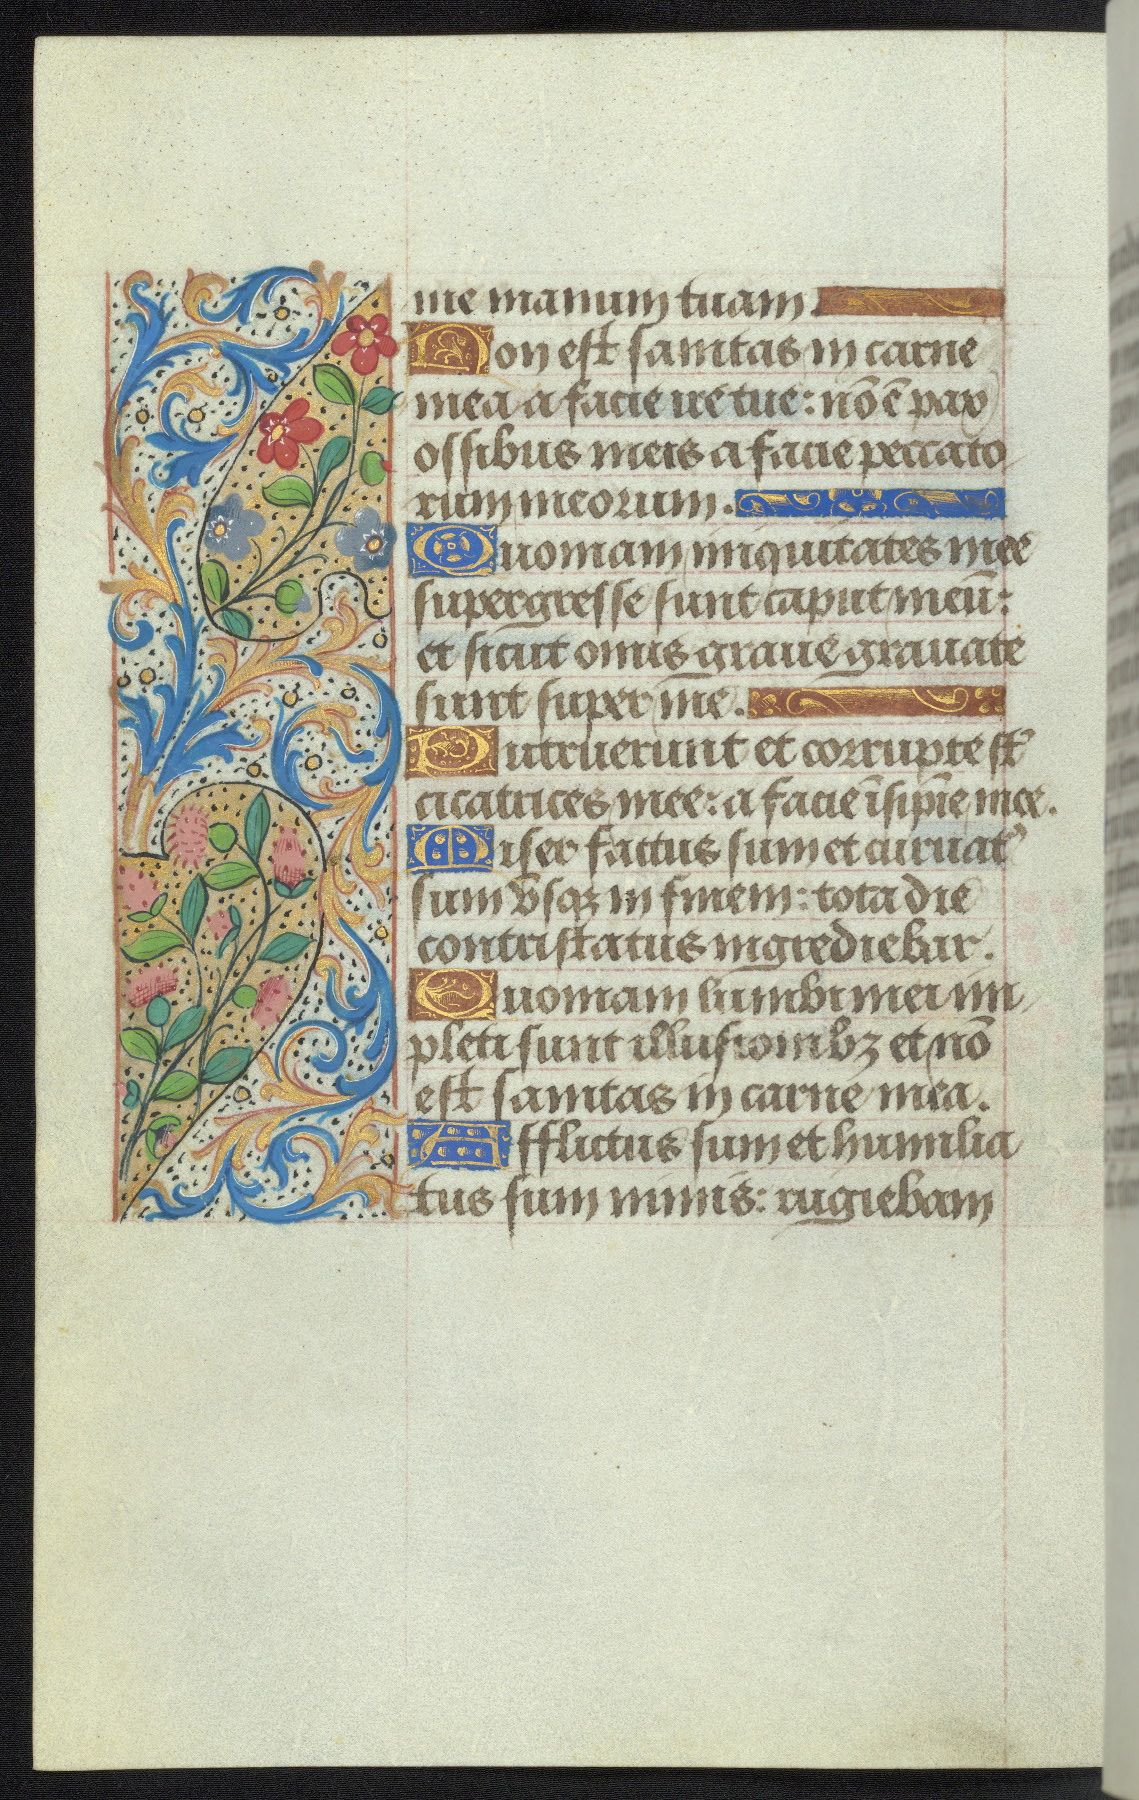 me manum tuam.
Non est sanitas in carne
mea a facie ire tue: nō ē pax
ossibus meis a facie peccato
rum meorum.
Quoniam iniquitates mee
supergresse sunt caput meū:
et sicut onus graue grauate
sunt super me.
Putruerunt et corrupte st̄
cicatrices mee: a facie īsipiē mee.
Miser factus sum et curuatꝰ
sum vsqꝫ in finem: tota die
contristatus ingrediebar.
Quoniam lumbi mei im
pleti sunt illusionibꝫ et nō
est sanitas in carne mea.
Afflictus sum et humilia
tus sum nimis: rugiebam